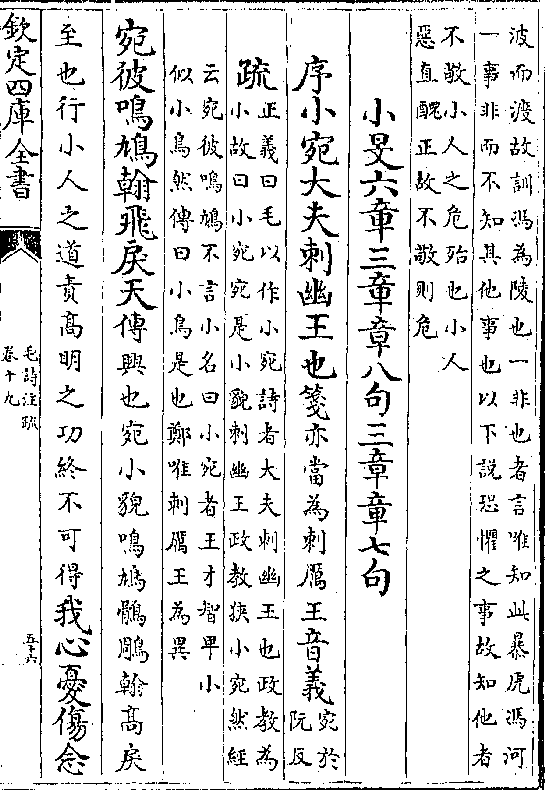 波而渡故訓馮為陵也一非也者言唯知此暴虎馮河
一事非而不知其他事也以下説恐懼之事故知他者
不敬小人之危殆也小人
惡直醜正故不敬則危
小旻六章三章章八句三章章七句
序小宛大夫刺幽王也箋亦當為刺厲王音義宛於
阮反
疏正義曰毛以作小宛詩者大夫刺幽王也政教為
小故曰小宛宛是小貌刺幽王政教狹小宛然經
云宛彼鳴鳩不言小名曰小宛者王才智卑小
似小鳥然傳曰小鳥是也鄭唯刺厲王為異
宛彼鳴鳩翰飛戾天傳興也宛小貌鳴鳩鶻鵰翰高戾
至也行小人之道責高明之功終不可得我心憂傷念
欽定四庫全書
毛詩注疏
卷十九
五十六